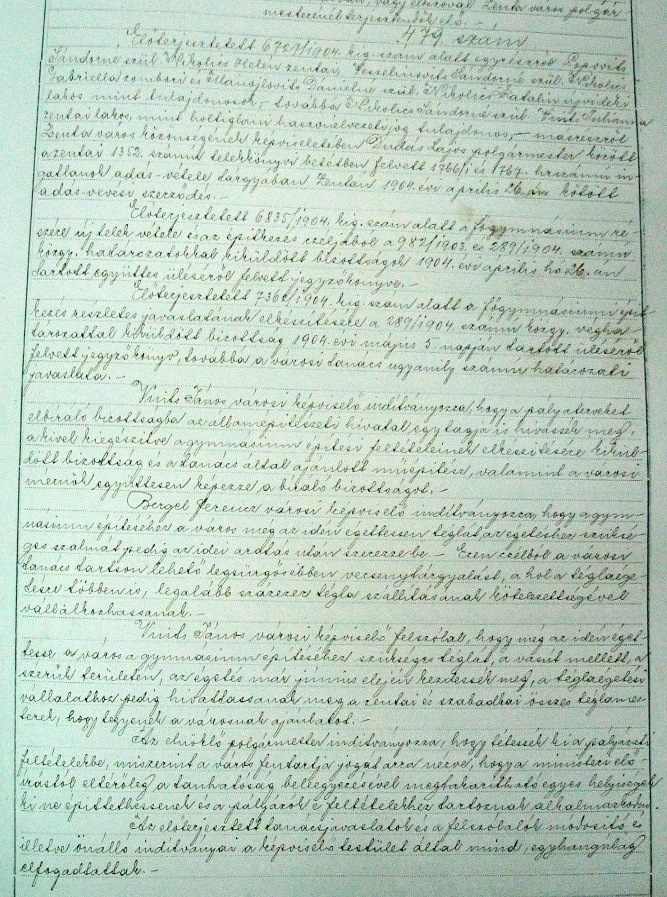 vagy elzával Zenta város polgár
mesterénél terjesztendők elő. –
479. szám
Előterjesztetett 6727/1904. kig. szám alatt egyrészről Popovits
Sándorné szül. Nikolics Helén zentai, Veszelinovits Sándorné szül. Nikolics
Gabriella zombori és Manojlovits Damélné szül. Nikolics Katalin újvidéki
lakos mint tulajdonosok, – továbbá Nikolics Sándorné szül. Vuits Julianna
zentai lakos, mint holtiglani haszonélvezeti jog tulajdonos, – másrészről
Zenta város közönségének képviseletében Dudás Lajos polgármester között
a zentai 1352. számú telekkönyvi betétben felvett 1766/1 és 1767. hrszámú in-
gatlanok adás-vétele tárgyában Zentán 1904. évi április 26.-án kötött
adás-vevési szerződés. –
Előterjesztetett 6835/1904. kig. szám alatt a főgymnásium ré-
szére új telek vétele és az építkezés czéljából a 982/1903. és 289/1904. számú
közgy. határozatokkal kiküldött bizottságok 1904. évi április hó 26.-án
tartott együttes üléséről felvett jegyzőkönyve. –
Előterjesztetett 7360/1904. kig. szám alatt a főgymnásium épít-
kezés részletes javaslatának elkészítésére a 289/1904. számú közgy. végha-
tározattal kiküldött bizottság 1904. évi május 5. napján tartott üléséről
felvett jegyzőkönyv, továbbá a városi tanács ugyanily számú határozati
javaslata. –
Vuits János városi képviselő indítványozza, hogy a pályaterveket
elbíráló bizottságba az államépítészeti hivatal egy tagja is hivassék meg,
a kivel kiegészítve a gymnásium építési feltételeinek elkészítésére kikül-
dött bizottság és a tanács által ajánlott műépítész, valamint a városi
mérnök együttesen képezze a bíráló bizottságot. –
Bergel Ferencz városi képviselő indítványozza, hogy a gym-
násium építéséhez a város még az idén égettessen téglát, az égetéshez szüksé-
ges szalmát pedig az idei aratás után szerezze be. – Ezen czélból a városi
tanács tartson lehető legsürgősebben versenytárgyalást, a hol a téglaége-
tésre többen is, legalább százezer tégla szállításának kötelezettségével
vállalkozhassanak. –
Vuits János városi képviselő felszólal, hogy még az idén éget-
tesse a város a gymnásium építéséhez szükséges téglát, a vasút mellett, a
szérük területén, az égetés már június elején kezdessék meg, a téglaégetési
vállalathoz pedig hivattassanak meg a zentai és szabadkai összes téglames-
terek, hogy tegyenek a városnak ajánlatot. –
Az elnöklő polgármester indítványozza, hogy tétessék ki a pályázati
feltételekbe, miszerint a város fentartja jogát arra nézve, hogy a ministeri elő-
írástól eltérőleg a tanhatóság beleegyezésével megtakarítható egyes helyiségek
ki ne építtethessenek és a pályázók e feltételekhez tartoznak alkalmazkodni.
Az előterjesztett tanácsi javaslatok és a felszólalók módosító és
illetve önálló indítványai a képviselő testület által mind, egyhangúlag
elfogadtattak. –